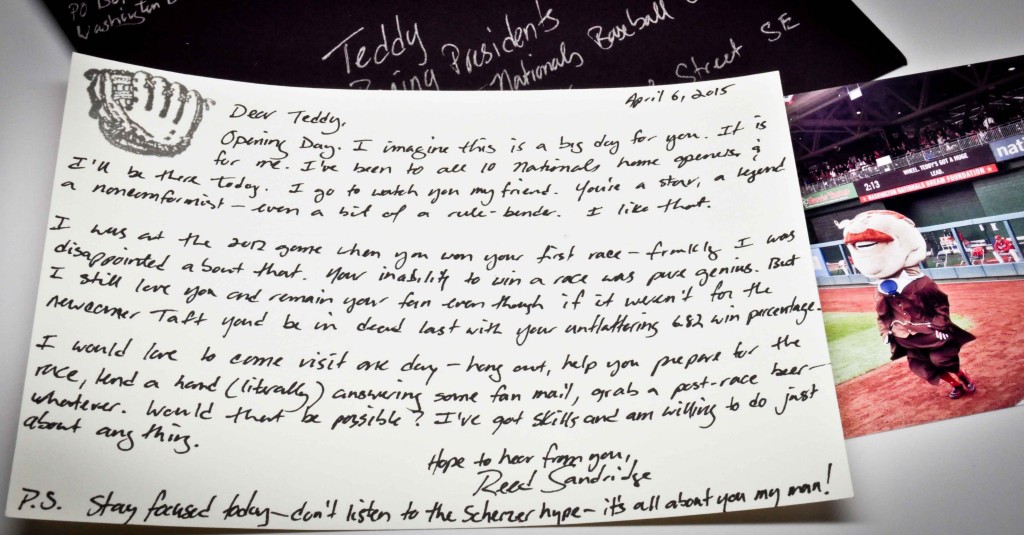 PO Box
Washington
Teddy
Racing Presidents
Nationals Baseball
Street SE
April 6, 2015
Dear Teddy,
Opening Day. I imagine this is a big day for you. It is
for me. I've been to all 10 Nationals home openers &
I'll be there today. I go to watch you my friend. You're a star, a legend
a nonconformist – even a bit of a rule-bender. I like that.
I was at the 2012 game when you won your first race – frankly I was
disappointed about that. Your inability to win a race was pure genius. But
I still love you and remain your fan even though if it weren't for the
newcomer Taft you'd be in dead last with your unflattering 6.82 win percentage.
I would love to come visit one day – hang out, help you prepare for the
race, lend a hand (literally) answering some fan mail, grab a post-race beer –
whatever. Would that be possible? I've got skills and am willing to do just
about anything.
Hope to hear from you,
Reed Sandridge
P.S. Stay focused today – don't listen to the Scherzer hype – it's all about you my man!
WHEEL, TEDDY'S GOT A HUGE
LEAD.
2:13
WASHINGTON NATIONALS DREAM FOUNDATION
nat